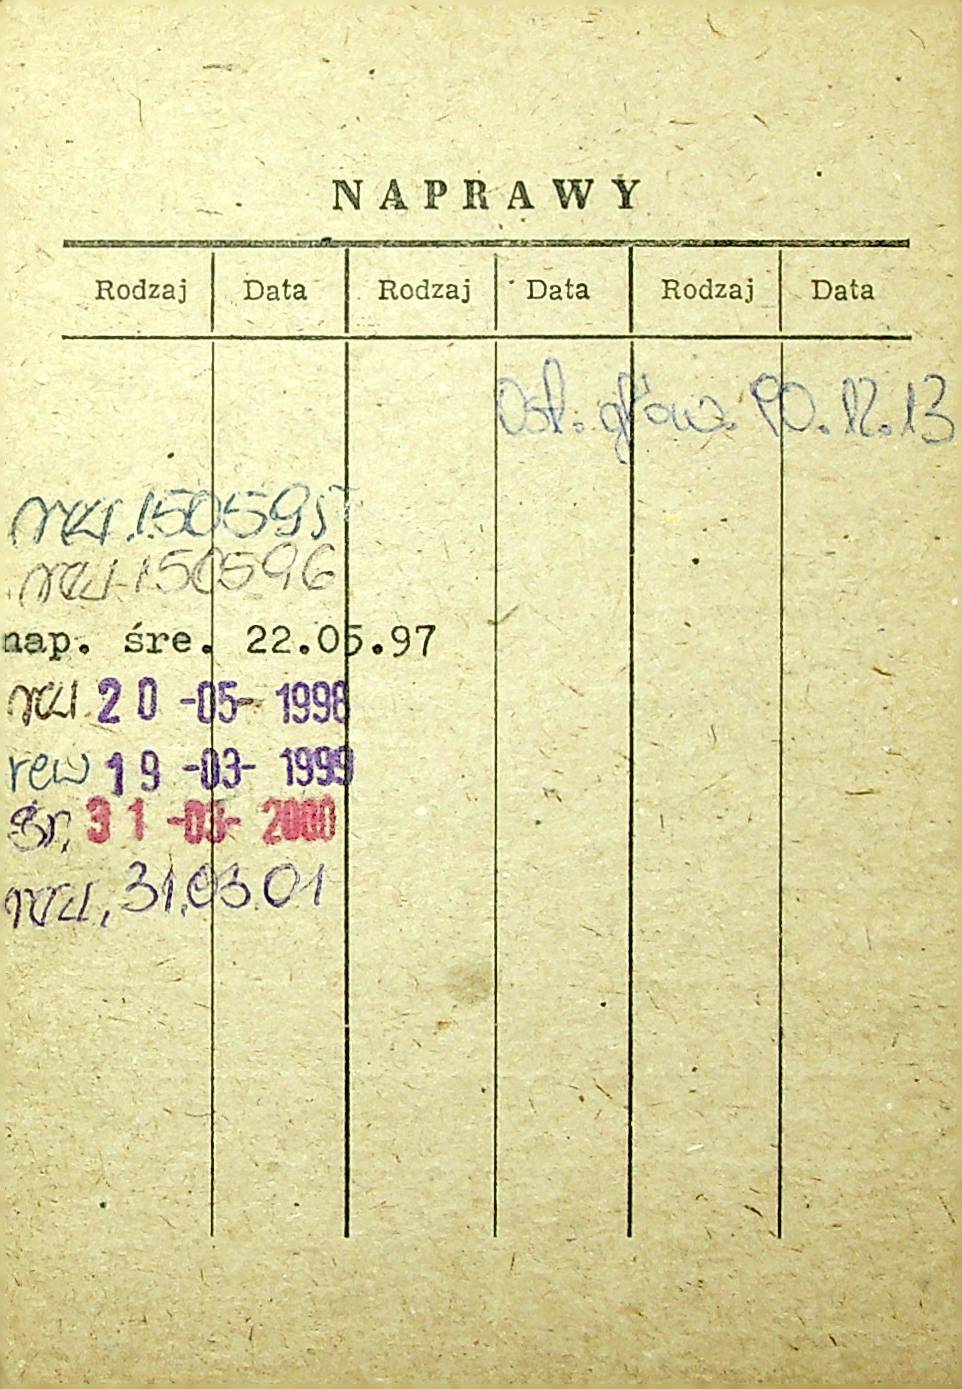 NAPRAWY
Rodzaj Data Rodzaj Data Rodzaj Data
Ost. głów. 90.12.13
rew. 150595
rew. 150596
nap. śre. 22.05.97
rew 20 -05- 1998
rew 19 -03- 1999
śr. 31 -03- 2000
rew. 31.03.01